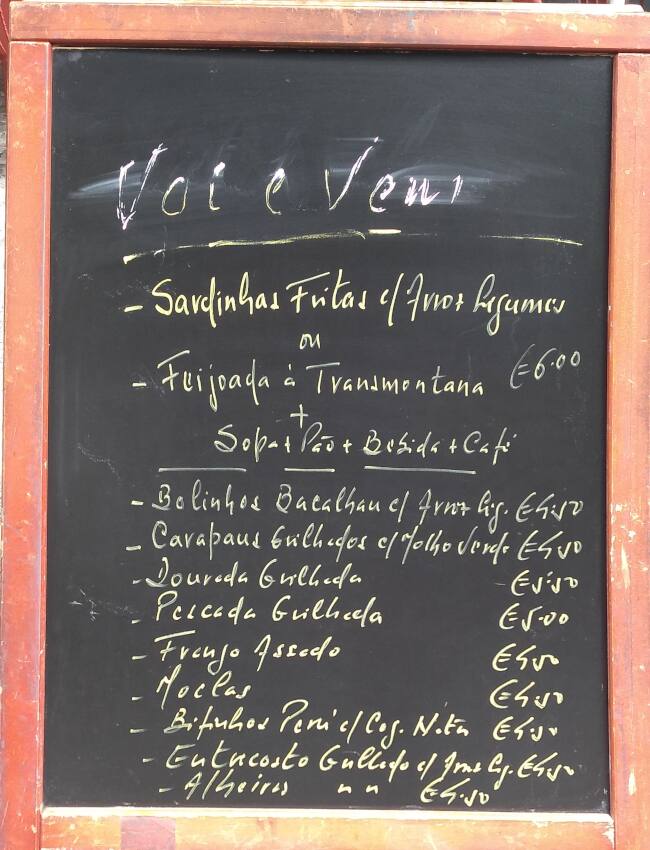 Vai e Vem
- Sardinhas Fritas c/ Arroz Legumes
ou
- Feijoada à Transmontana €6.00
+
Sopa + Pão + Bebida + Café
- Bolinhos Bacalhau c/ Arroz Leg. €4.50
- Carapaus Grilhados c/ Molho Verde €4.50
- Dourada Grilhada €5.50
- Pescada Grilhada €5.00
- Frango Assado €4.50
- Moelas €4.50
- Bifinhos Peru c/ Cog. Nata €4.50
- Entrecosto Grilhado c/ Arroz Leg. €4.50
- Alheiras " " €4.50